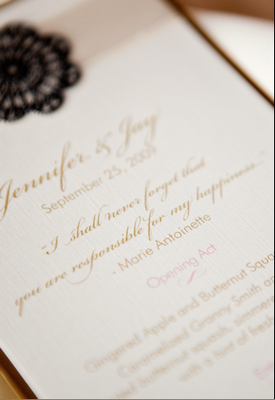 Jennifer & Jay
September 25, 2009
"I shall never forget that
you are responsible for my happiness."
- Marie Antoinette
Opening Act
Gingered Apple and Butternut Squa
Caramelized Granny Smith an
butternut squash,
with a hint of fresh